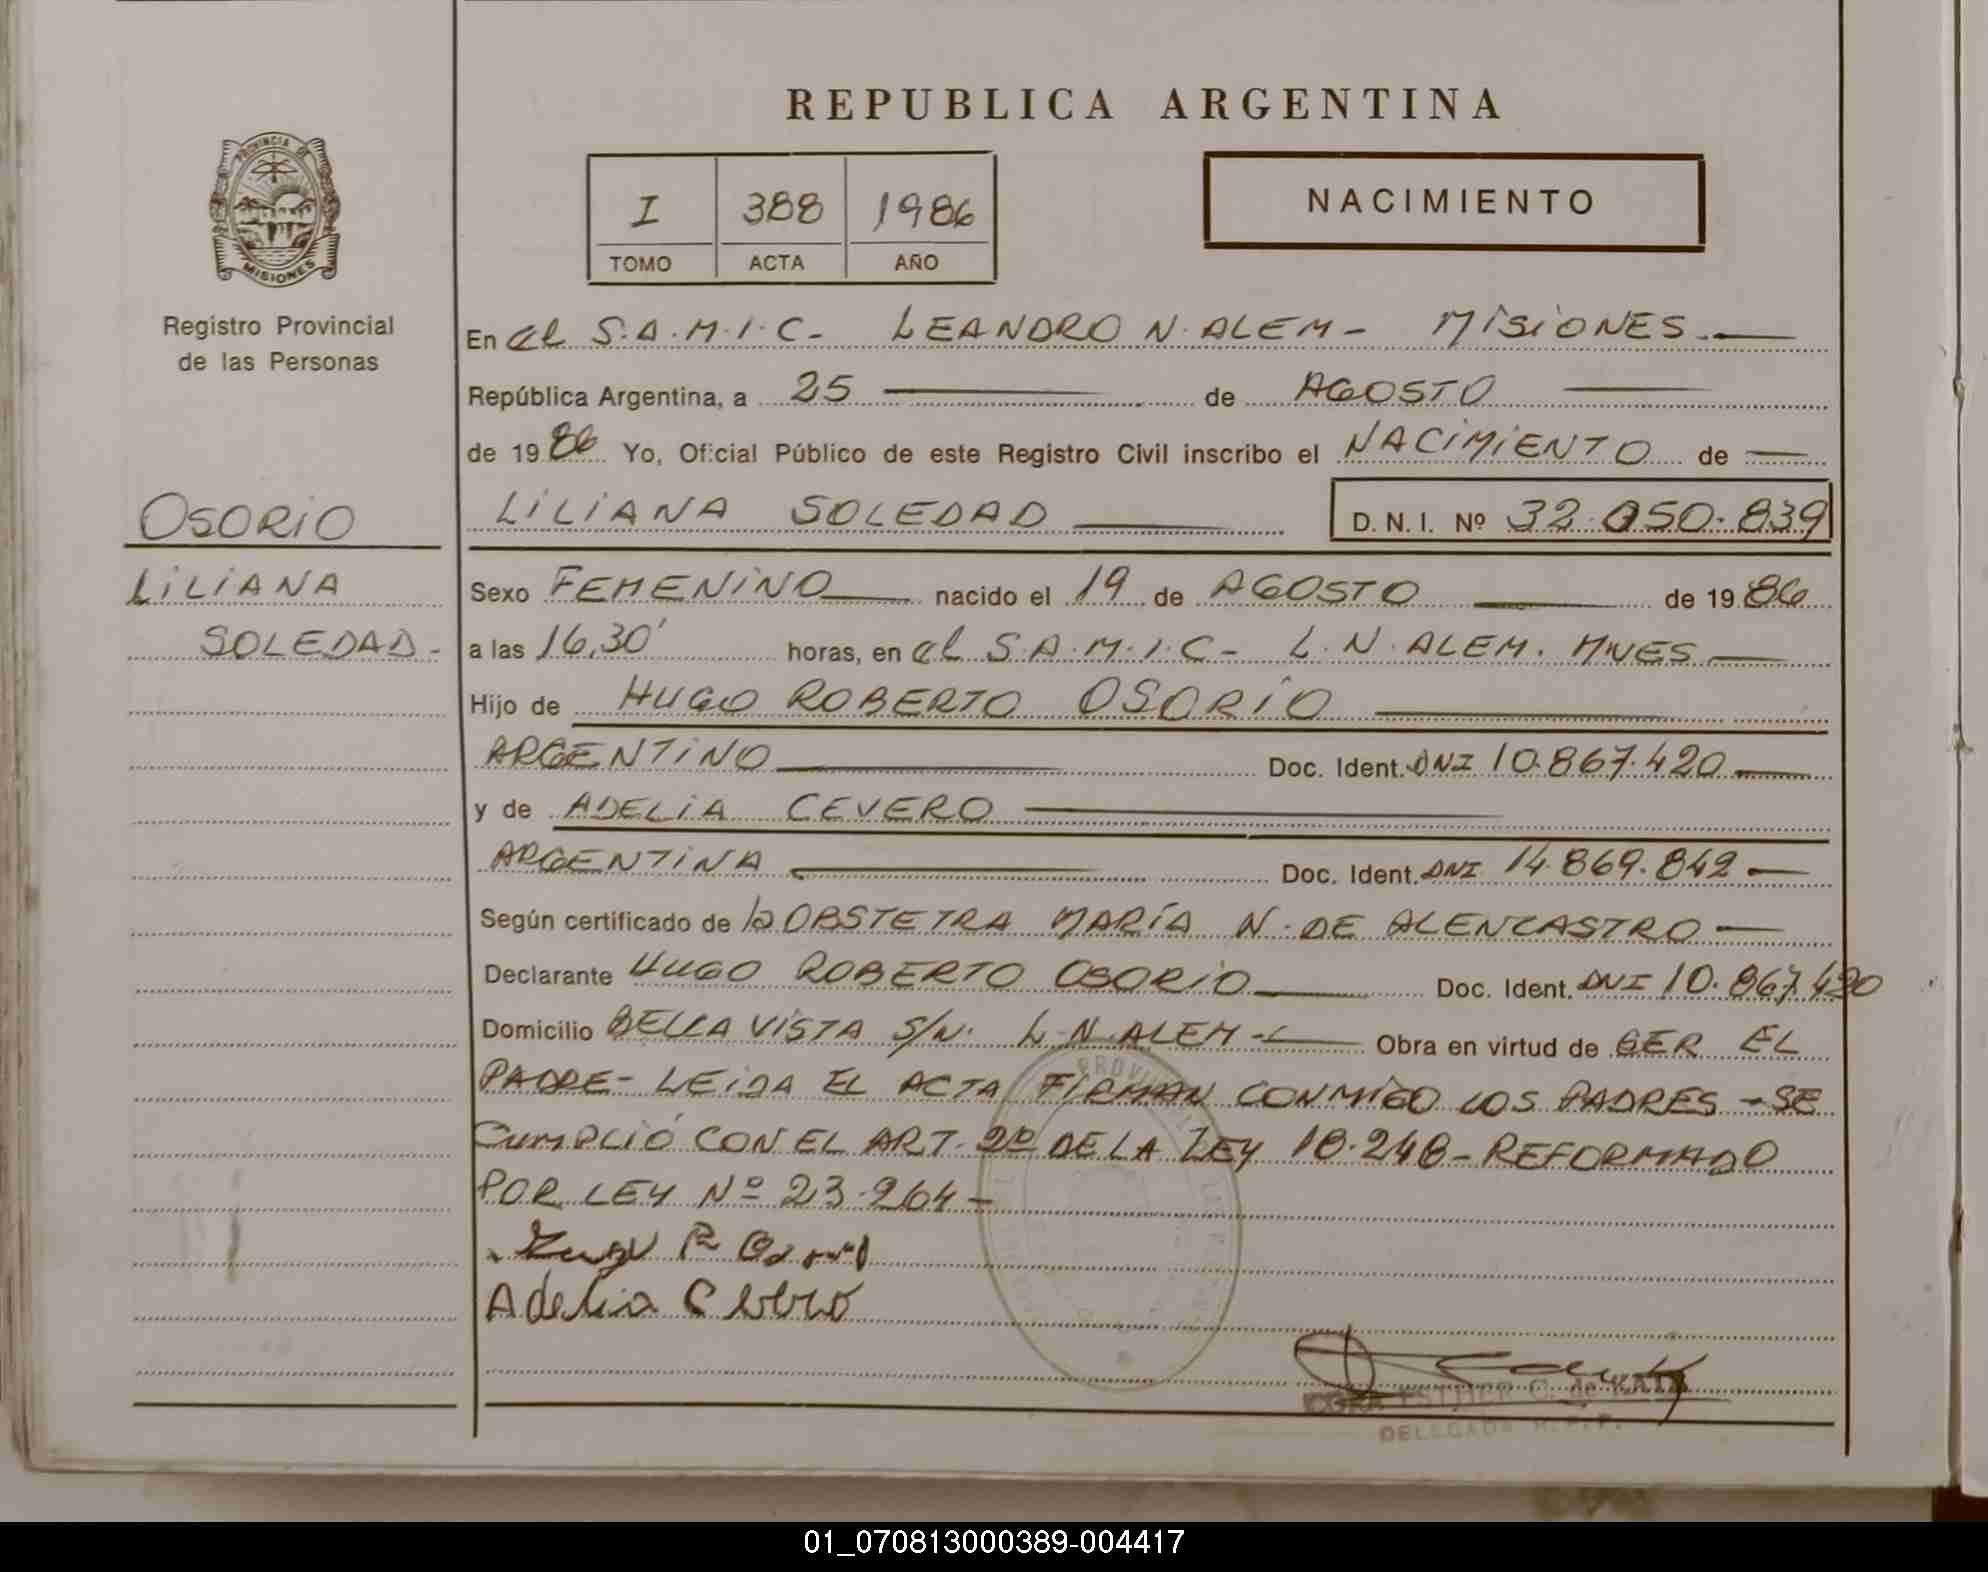 REPUBLICA ARGENTINA
PROVINCIA DE
MISIONES
Registro Provincial
de las Personas
I 388 1986
TOMO ACTA AÑO
NACIMIENTO
En el S.A.M.I.C- LEANDRO N. ALEM- MISIONES.-
República Argentina, a 25 de AGOSTO
de 1986 Yo, Oficial Público de este Registro Civil inscribo el NACIMIENTO de
OSORIO
LILIANA SOLEDAD D. N. I. Nº 32.050.839
LILIANA
SOLEDAD-
Sexo FEMENINO nacido el 19 de AGOSTO de 1986
a las 16,30' horas, en el S.A.M.I.C- L.N.ALEM. MNES
Hijo de HUGO ROBERTO OSORIO
ARGENTINO Doc. Ident. DNI 10.867.420
y de ADELIA CEVERO
ARGENTINA Doc. Ident. DNI 14.869.842
Según certificado de la OBSTETRA MARÍA N. DE ALENCASTRO
Declarante HUGO ROBERTO OSORIO Doc. Ident. DNI 10.867.420
Domicilio BELLA VISTA S/N. L.N.ALEM- Obra en virtud de SER EL
PADRE- LEIDA EL ACTA FIRMAN CONMIGO LOS PADRES -SE
CUMPLIÓ CON EL ART. 2º DE LA LEY 18.248- REFORMADO
POR LEY Nº 23.264-
Adelia
ESTHER C. de
DELEGADA R.P.P.
01_070813000389-004417